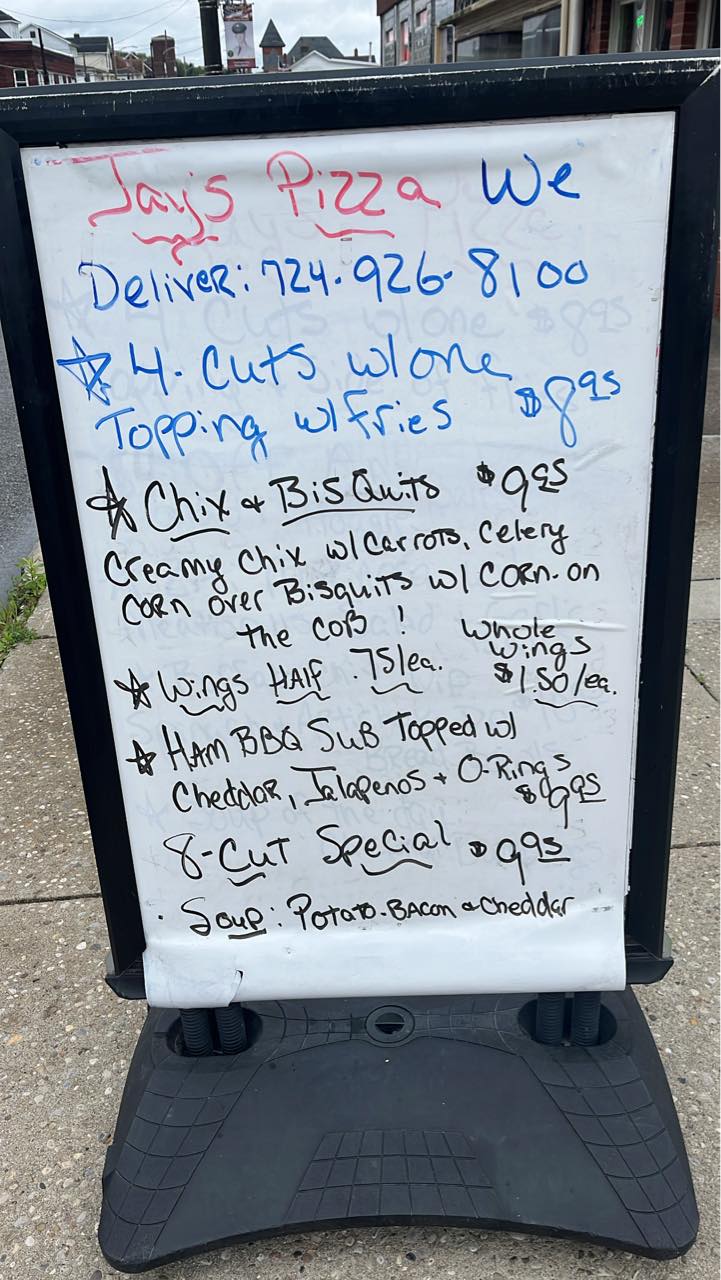 Jay's Pizza We
Deliver: 724.926.8100
4. Cuts w/one
Topping w/fries $8.95
Chix & BisQuits $9.95
Creamy Chix w/Carrots, Celery
Corn over Bisquits w/ Corn. on
the coB !
Whole
Wings
Wings HAlf .75/ea. $1.50/ea.
HAm BBQ SuB Topped w/
Cheddar, Jalapenos + O-Rings
$9.95
8-Cut Special $9.95
Soup: Potato-BAcon & Cheddar